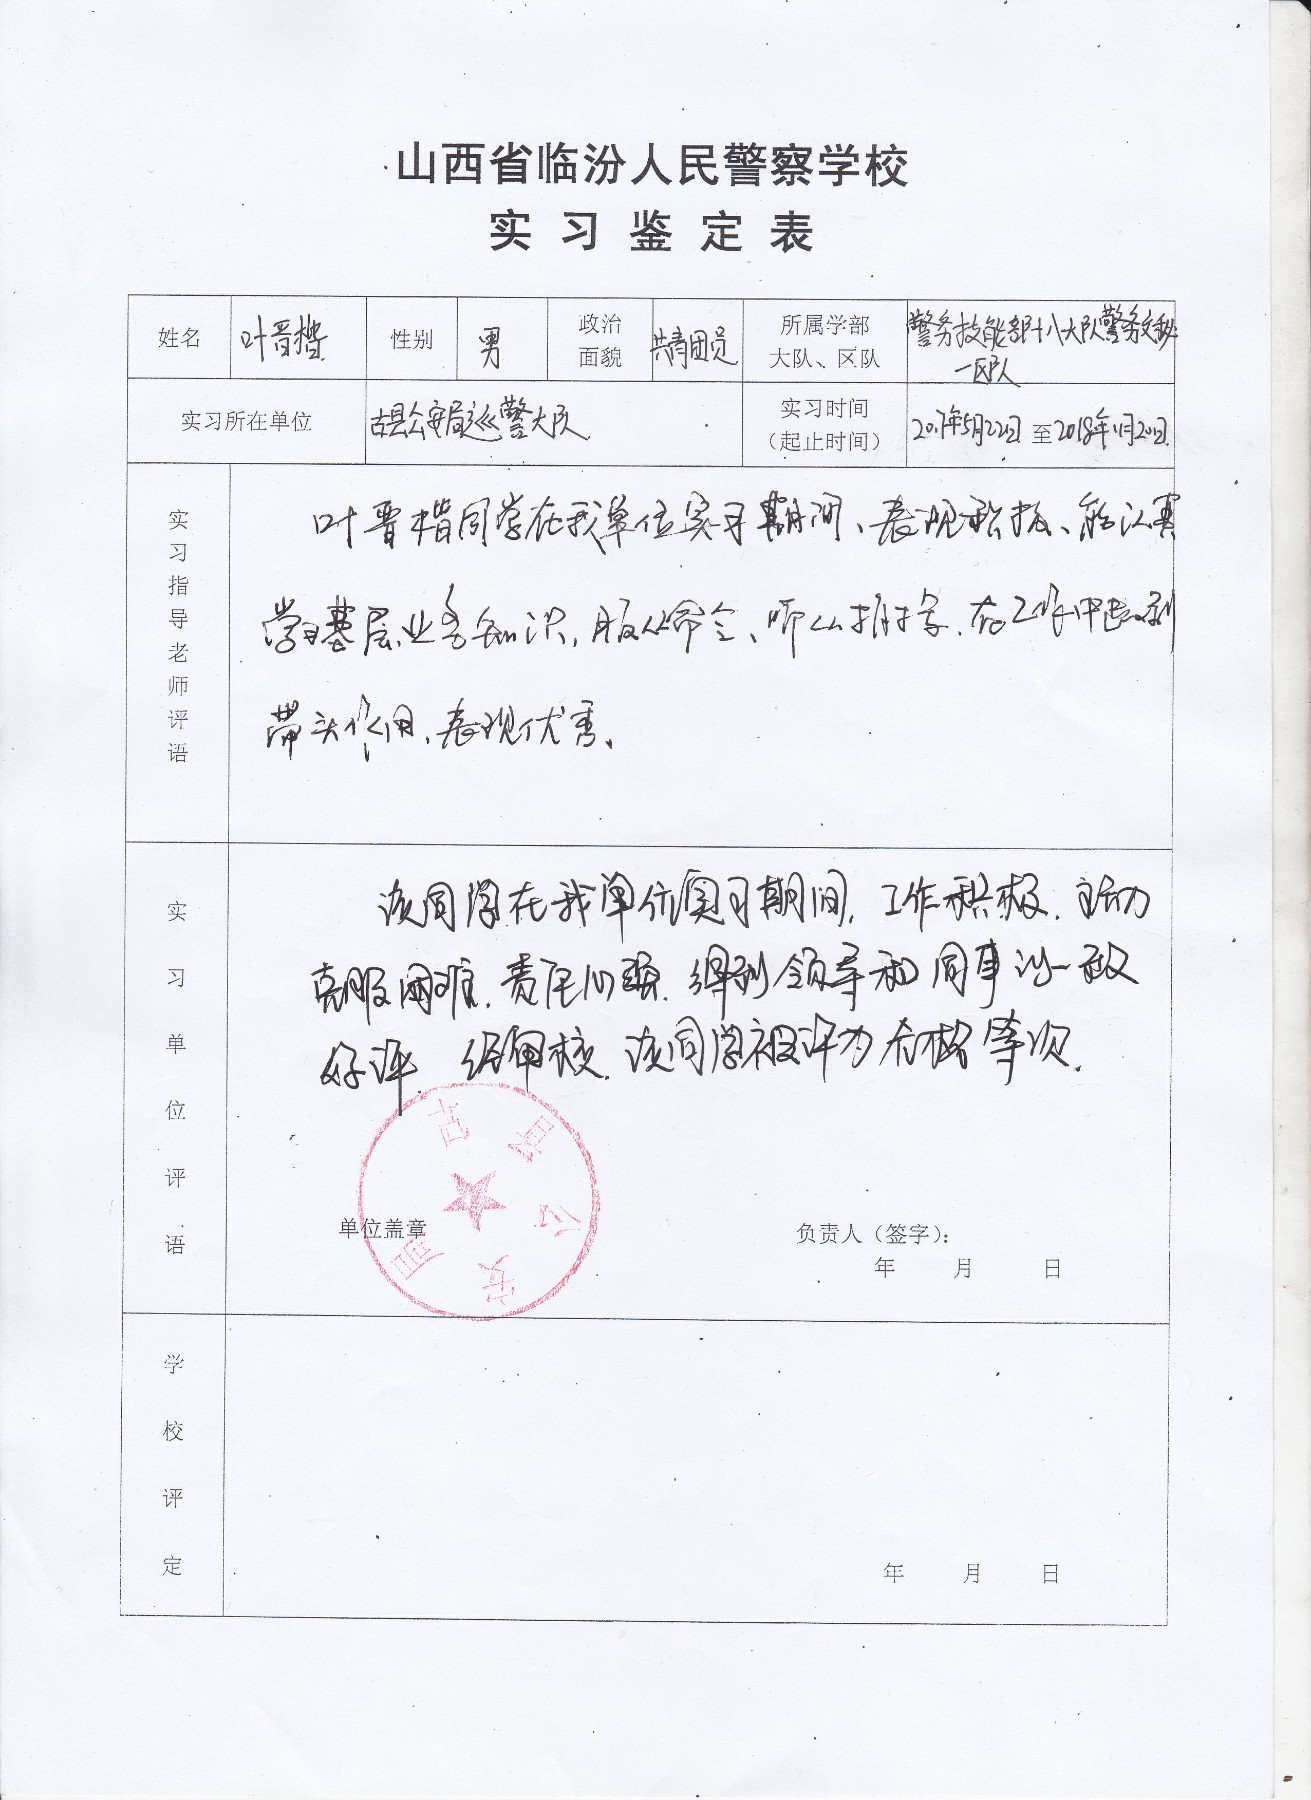 山西省临汾人民警察学校
实习鉴定表
姓名 叶晋楷 性别 男 政治面貌 共青团员 所属学部大队、区队 警务技能部十八大队警务文秘一区队
实习所在单位 古县公安局巡警大队 实习时间（起止时间） 2017年5月22日至2018年1月20日
实习指导老师评语
叶晋楷同学在我单位实习期间、表现积极、能认真
学习基层业务知识，服从命令、听从指挥，在工作中起到
带头作用、表现优秀、
实习单位评语
该同学在我单位实习期间，工作积极，主动
克服困难，责任心强，得到领导和同事的一致
好评，经审核，该同学被评为合格等次，
古县公安局
单位盖章 负责人（签字）：
年 月 日
学校评定
年 月 日